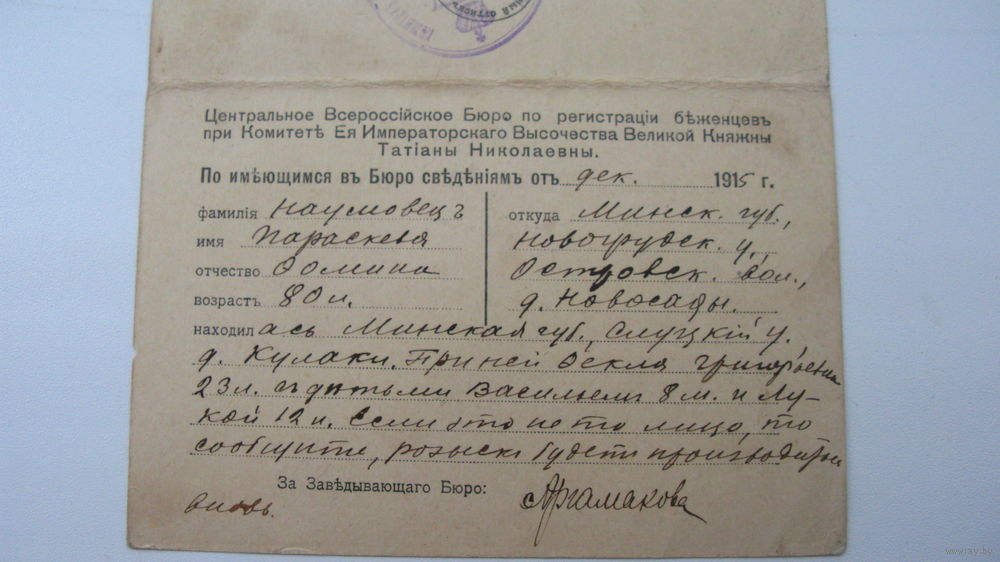 Центральное Всероссійское Бюро по регистраціи бѣженцевъ
при Комитетѣ Ея Императорскаго Высочества Великой Княжны
Татіаны Николаевны.
По имѣющимся въ Бюро свѣдѣніямъ отъ дек. 1915 г.
фамилія Наумовецъ
имя Параскева
отчество Ѳомина
возрастъ 80 л.
откуда Минск. губ.,
Новогрудск. у.,
Островск. вол.,
д. Новосады.
находилась Минская губ., Слуцкій у.
д. Кулаки. При ней Ѳекла Григорьевна
23 л. съ дѣтьми Васильемъ 8 м. и Лу-
кой 12 л. Если это не то лицо, то
сообщите, розыски будетъ производиться
За Завѣдывающаго Бюро: Аргамакова
вновь.
www.ay.by